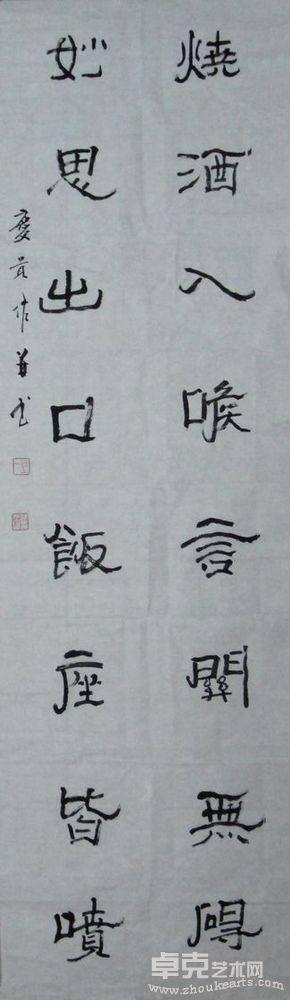 燒酒入喉言關無碍
妙思出口飯座皆噴
作并书
卓克艺术网
www.zhoukearts.com